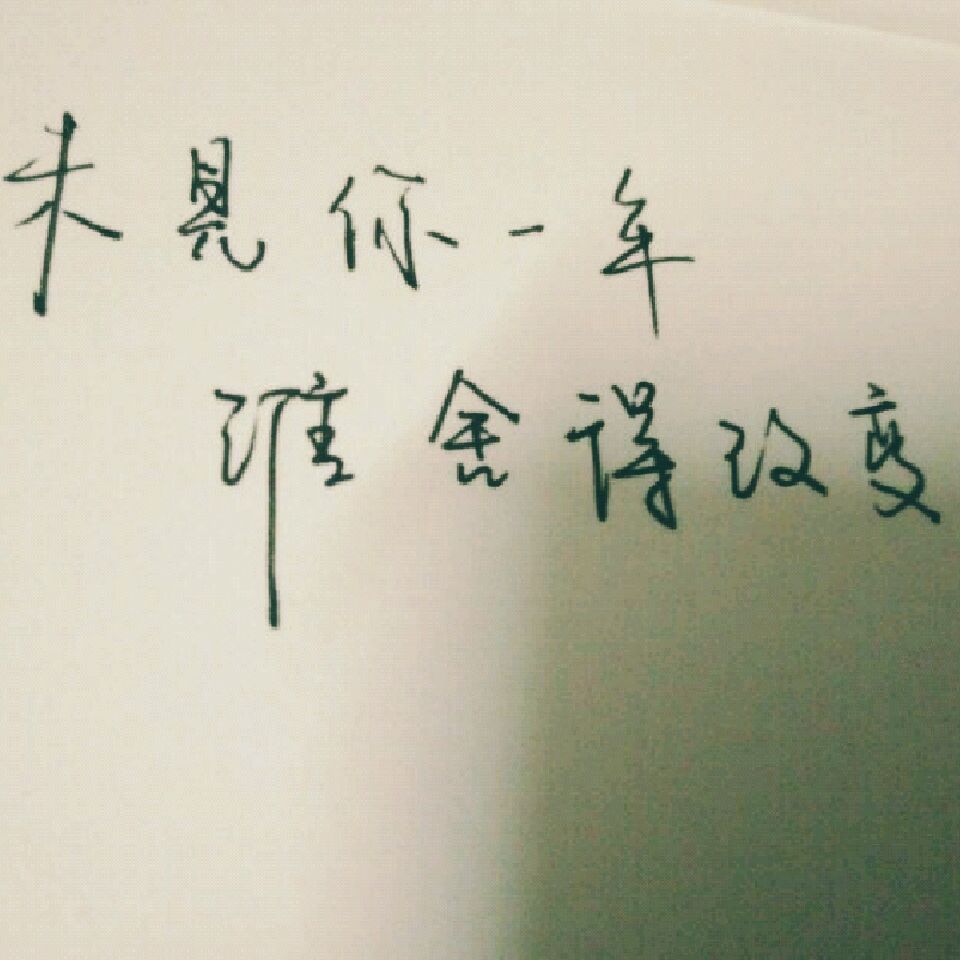 未見你一年
谁舍得改变